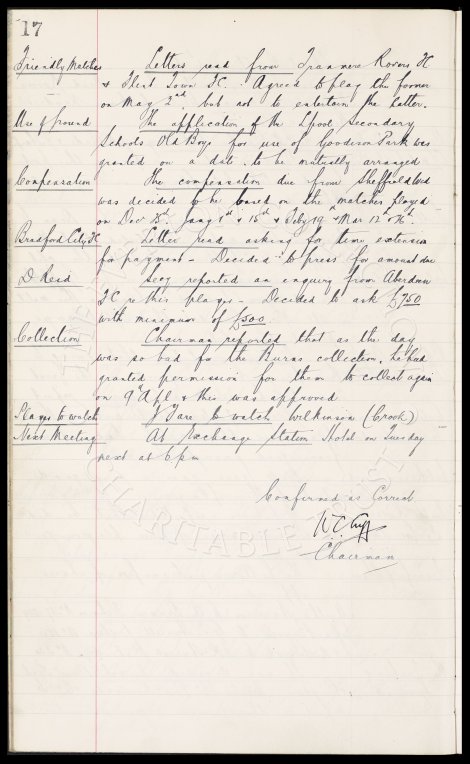 17
Friendly Matches Letters read from Tranmere Rovers FC
& Flint Town FC. Agreed to play the former
on May 2nd but not to entertain the latter.
Use of Ground The application of the Lpool Secondary
Schools Old Boys for use of Goodison Park was
granted on a date to be mutually arranged
Compensation The compensation due from Sheffield Utd
was decided to be based on the matches played
on Dec 25th Jany 1st & 15th & Feby 19 & Mar 12th &
Bradford City FC Letter read asking for time extension
for payment - Decided to press for amount due
D Reid Secy reported an inquiry from Aberdeen
FC re this player - Decided to ask £750
with minimum of £500
Collection Chairman reported that as the day
was so bad for the Nurses collection, he had
granted permission for them to collect again
on 9th Apl & this was approved
Players to watch J Fare to watch Wilkinson (Crook)
Next Meeting At Exchange Station Hotel on Tuesday
next at 6pm
Confirmed as Correct
W.C. Cuff
Chairman
CHARITABLE TRUST